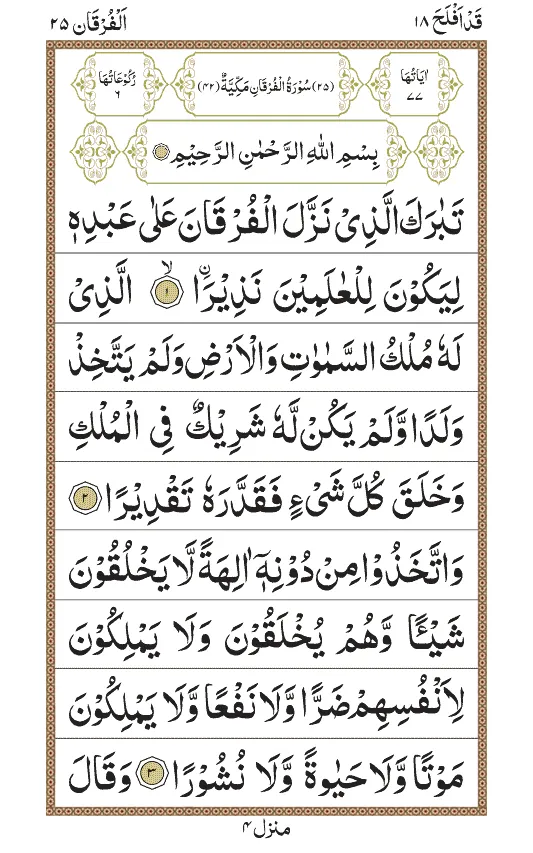 قَدْ اَفْلَحَ ١٨
اَلْفُرْقَان ٢٥
اٰيَاتُهَا ٧٧
(٢٥) سُوْرَةُ الْفُرْقَانِ مَكِّيَّةٌ (٤٢)
رُكُوْعَاتُهَا ٦
بِسْمِ اللّٰهِ الرَّحْمٰنِ الرَّحِيْمِ
تَبٰرَكَ الَّذِىْ نَزَّلَ الْفُرْقَانَ عَلٰى عَبْدِهٖ
لِيَكُوْنَ لِلْعٰلَمِيْنَ نَذِيْرَاۨ ۙ‏ ١ الَّذِىْ
لَهٗ مُلْكُ السَّمٰوٰتِ وَالْاَرْضِ وَلَمْ يَتَّخِذْ
وَلَدًا وَّلَمْ يَكُنْ لَّهٗ شَرِيْكٌ فِى الْمُلْكِ
وَخَلَقَ كُلَّ شَىْءٍ فَقَدَّرَهٗ تَقْدِيْرًا ٢
وَاتَّخَذُوْا مِنْ دُوْنِهٖۤ اٰلِهَةً لَّا يَخْلُقُوْنَ
شَيْـًٔا وَّهُمْ يُخْلَقُوْنَ وَلَا يَمْلِكُوْنَ
لِاَنْفُسِهِمْ ضَرًّا وَّلَا نَفْعًا وَّلَا يَمْلِكُوْنَ
مَوْتًا وَّلَا حَيٰوةً وَّلَا نُشُوْرًا ٣ وَقَالَ
منزل ٤